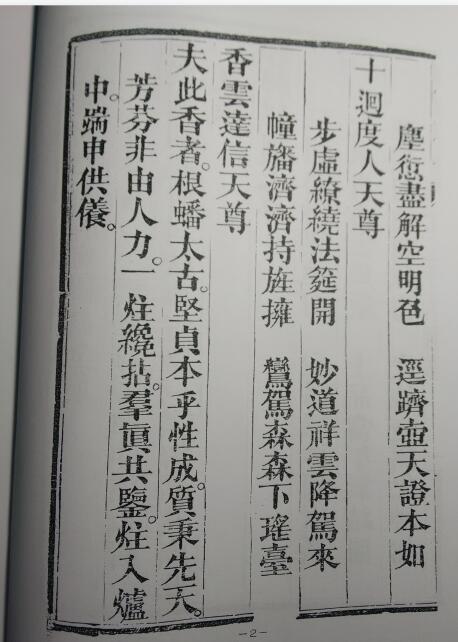 塵愆盡解空明色　逕躋壺天證本如
十迴度人天尊
步虛繚繞法筵開　妙道祥雲降駕來
幢旛濟濟持旌擁　鸞駕森森下瑤臺
香雲達信天尊
夫此香者。根蟠太古。堅貞本乎性成。質秉先天。
芳芬非由人力。一炷纔拈。羣眞共鑒。炷入爐
中。端申供儀。
—2—